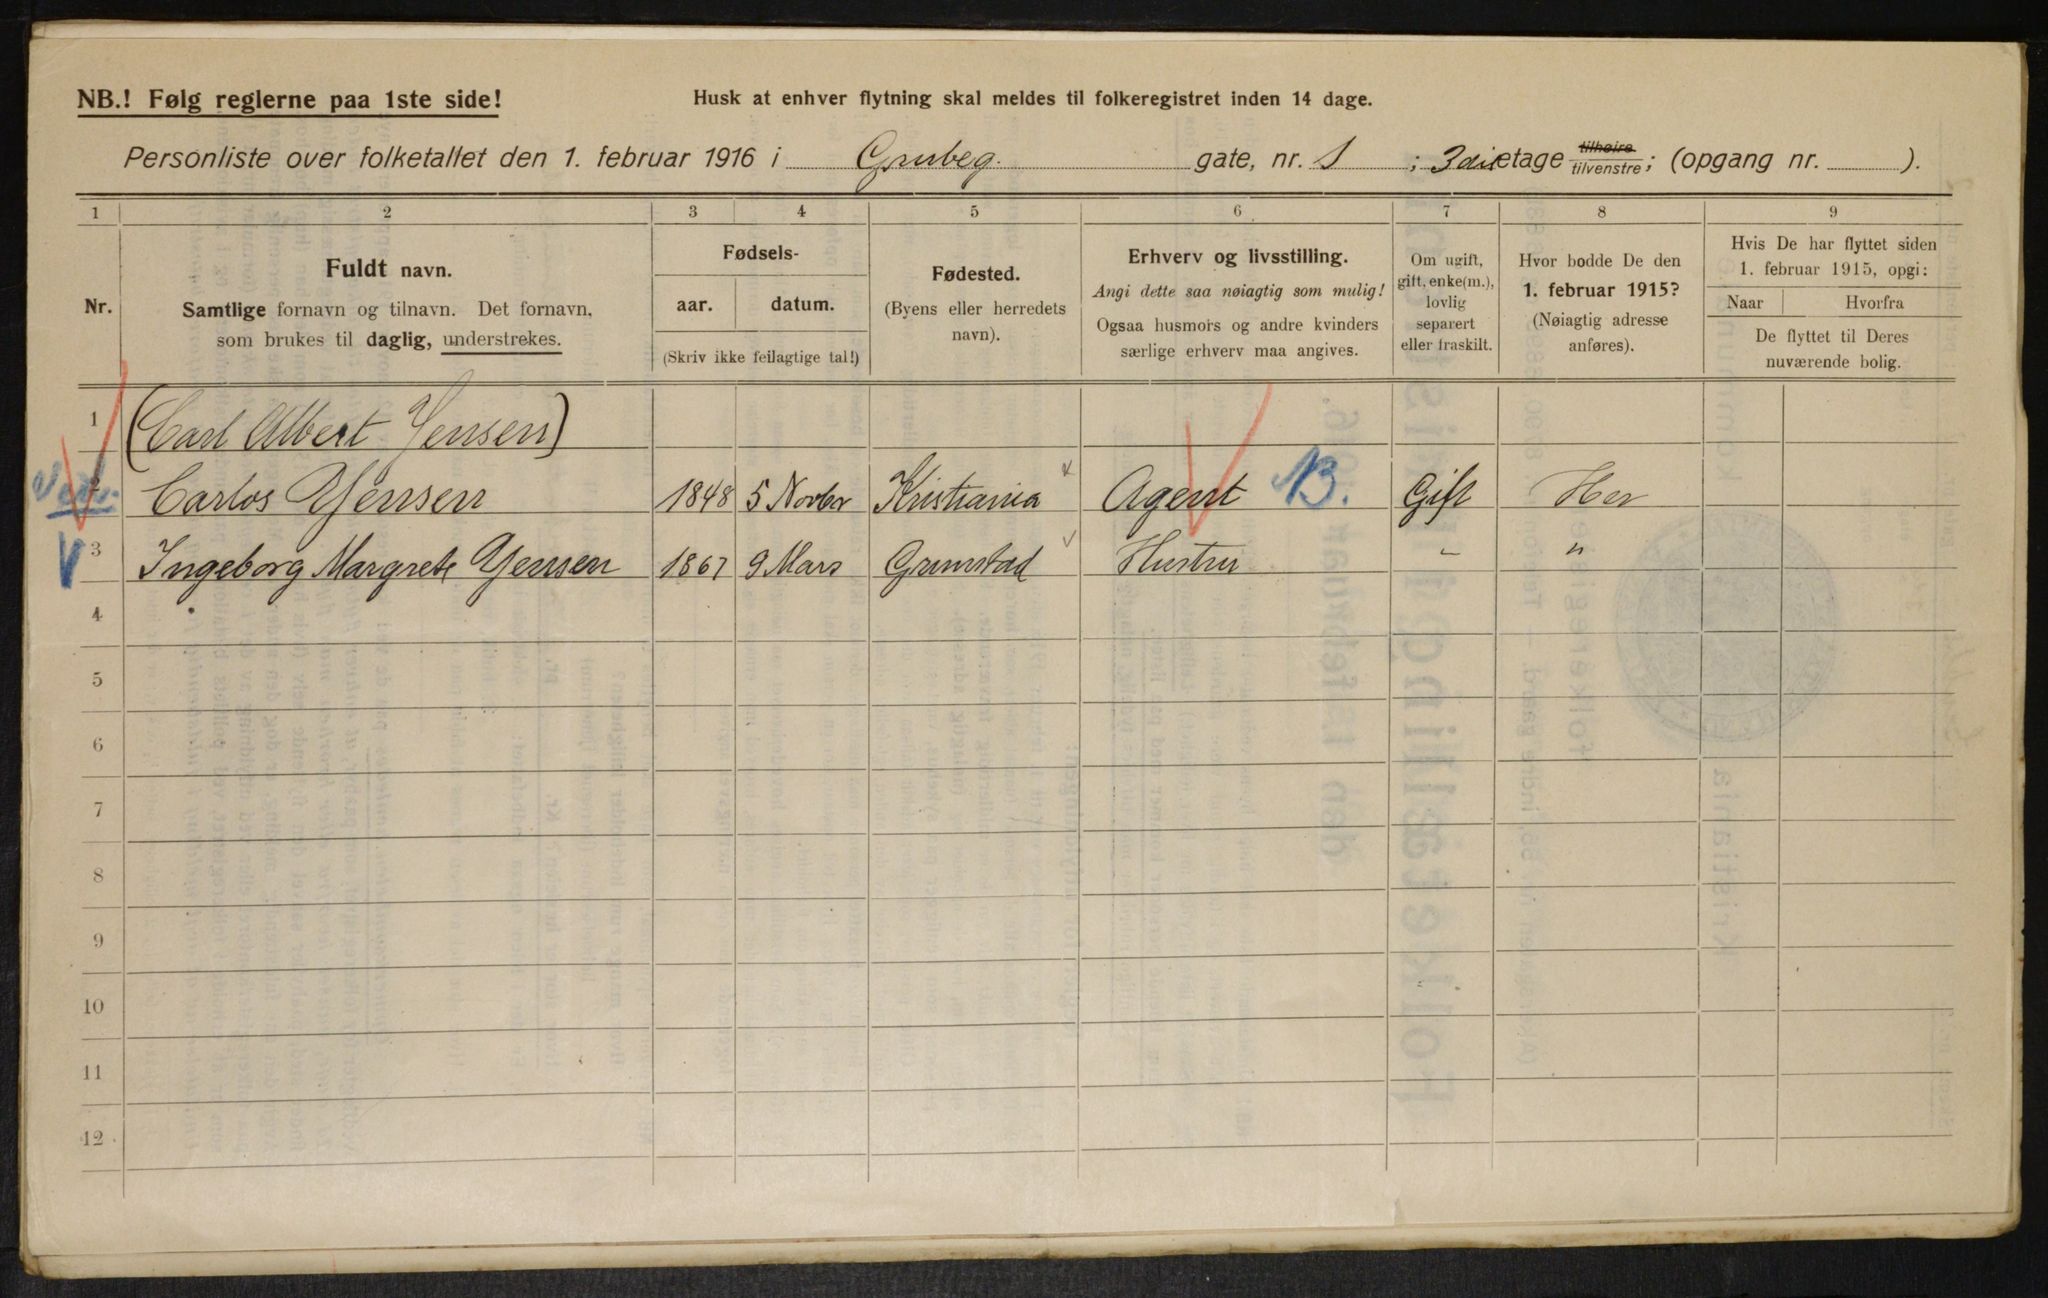 NB.! Følg reglerne paa 1ste side!
Husk at enhver flytning skal meldes til folkeregistret inden 14 dage.
Personliste over folketallet den 1. februar 1916 i Grubeg. gate, nr. 1 ; 3die etage tilhøire tilvenstre; (opgang nr. ).
1 2 3 4 5 6 7 8 9
Nr.
Fuldt navn.
Samtlige fornavn og tilnavn. Det fornavn,
som brukes til daglig, understrekes.
Fødsels-
aar. datum.
(Skriv ikke feilagtige tal!)
Fødested.
(Byens eller herredets
navn).
Erhverv og livsstilling.
Angi dette saa nøiagtig som mulig!
Ogsaa husmors og andre kvinders
særlige erhverv maa angives.
Om ugift,
gift, enke(m.),
lovlig
separert
eller fraskilt.
Hvor bodde De den
1. februar 1915?
(Nøiagtig adresse
anføres).
Hvis De har flyttet siden
1. februar 1915, opgi:
Naar Hvorfra
De flyttet til Deres
nuværende bolig.
1 (Carl Albert Jensen)
2 Carlos Jensen 1848 5 Novbr Kristiania Agent B. Gift Her
3 Ingeborg Margrete Jensen 1867 9 Mars Grimstad Hustru " "
4
5
6
7
8
9
10
11
12